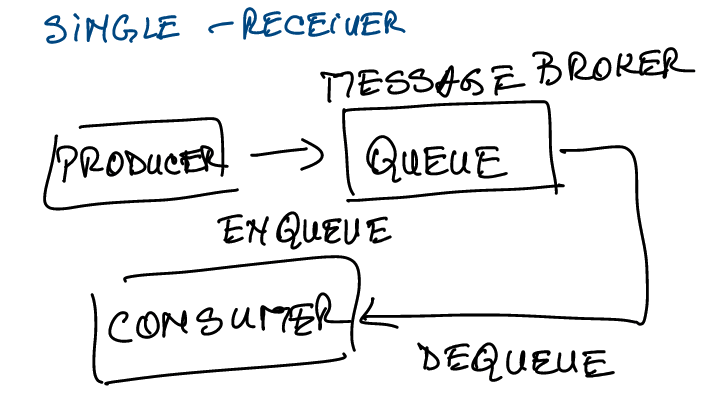 SINGLE - RECEIVER
MESSAGE BROKER
PRODUCER
QUEUE
ENQUEUE
CONSUMER
DEQUEUE